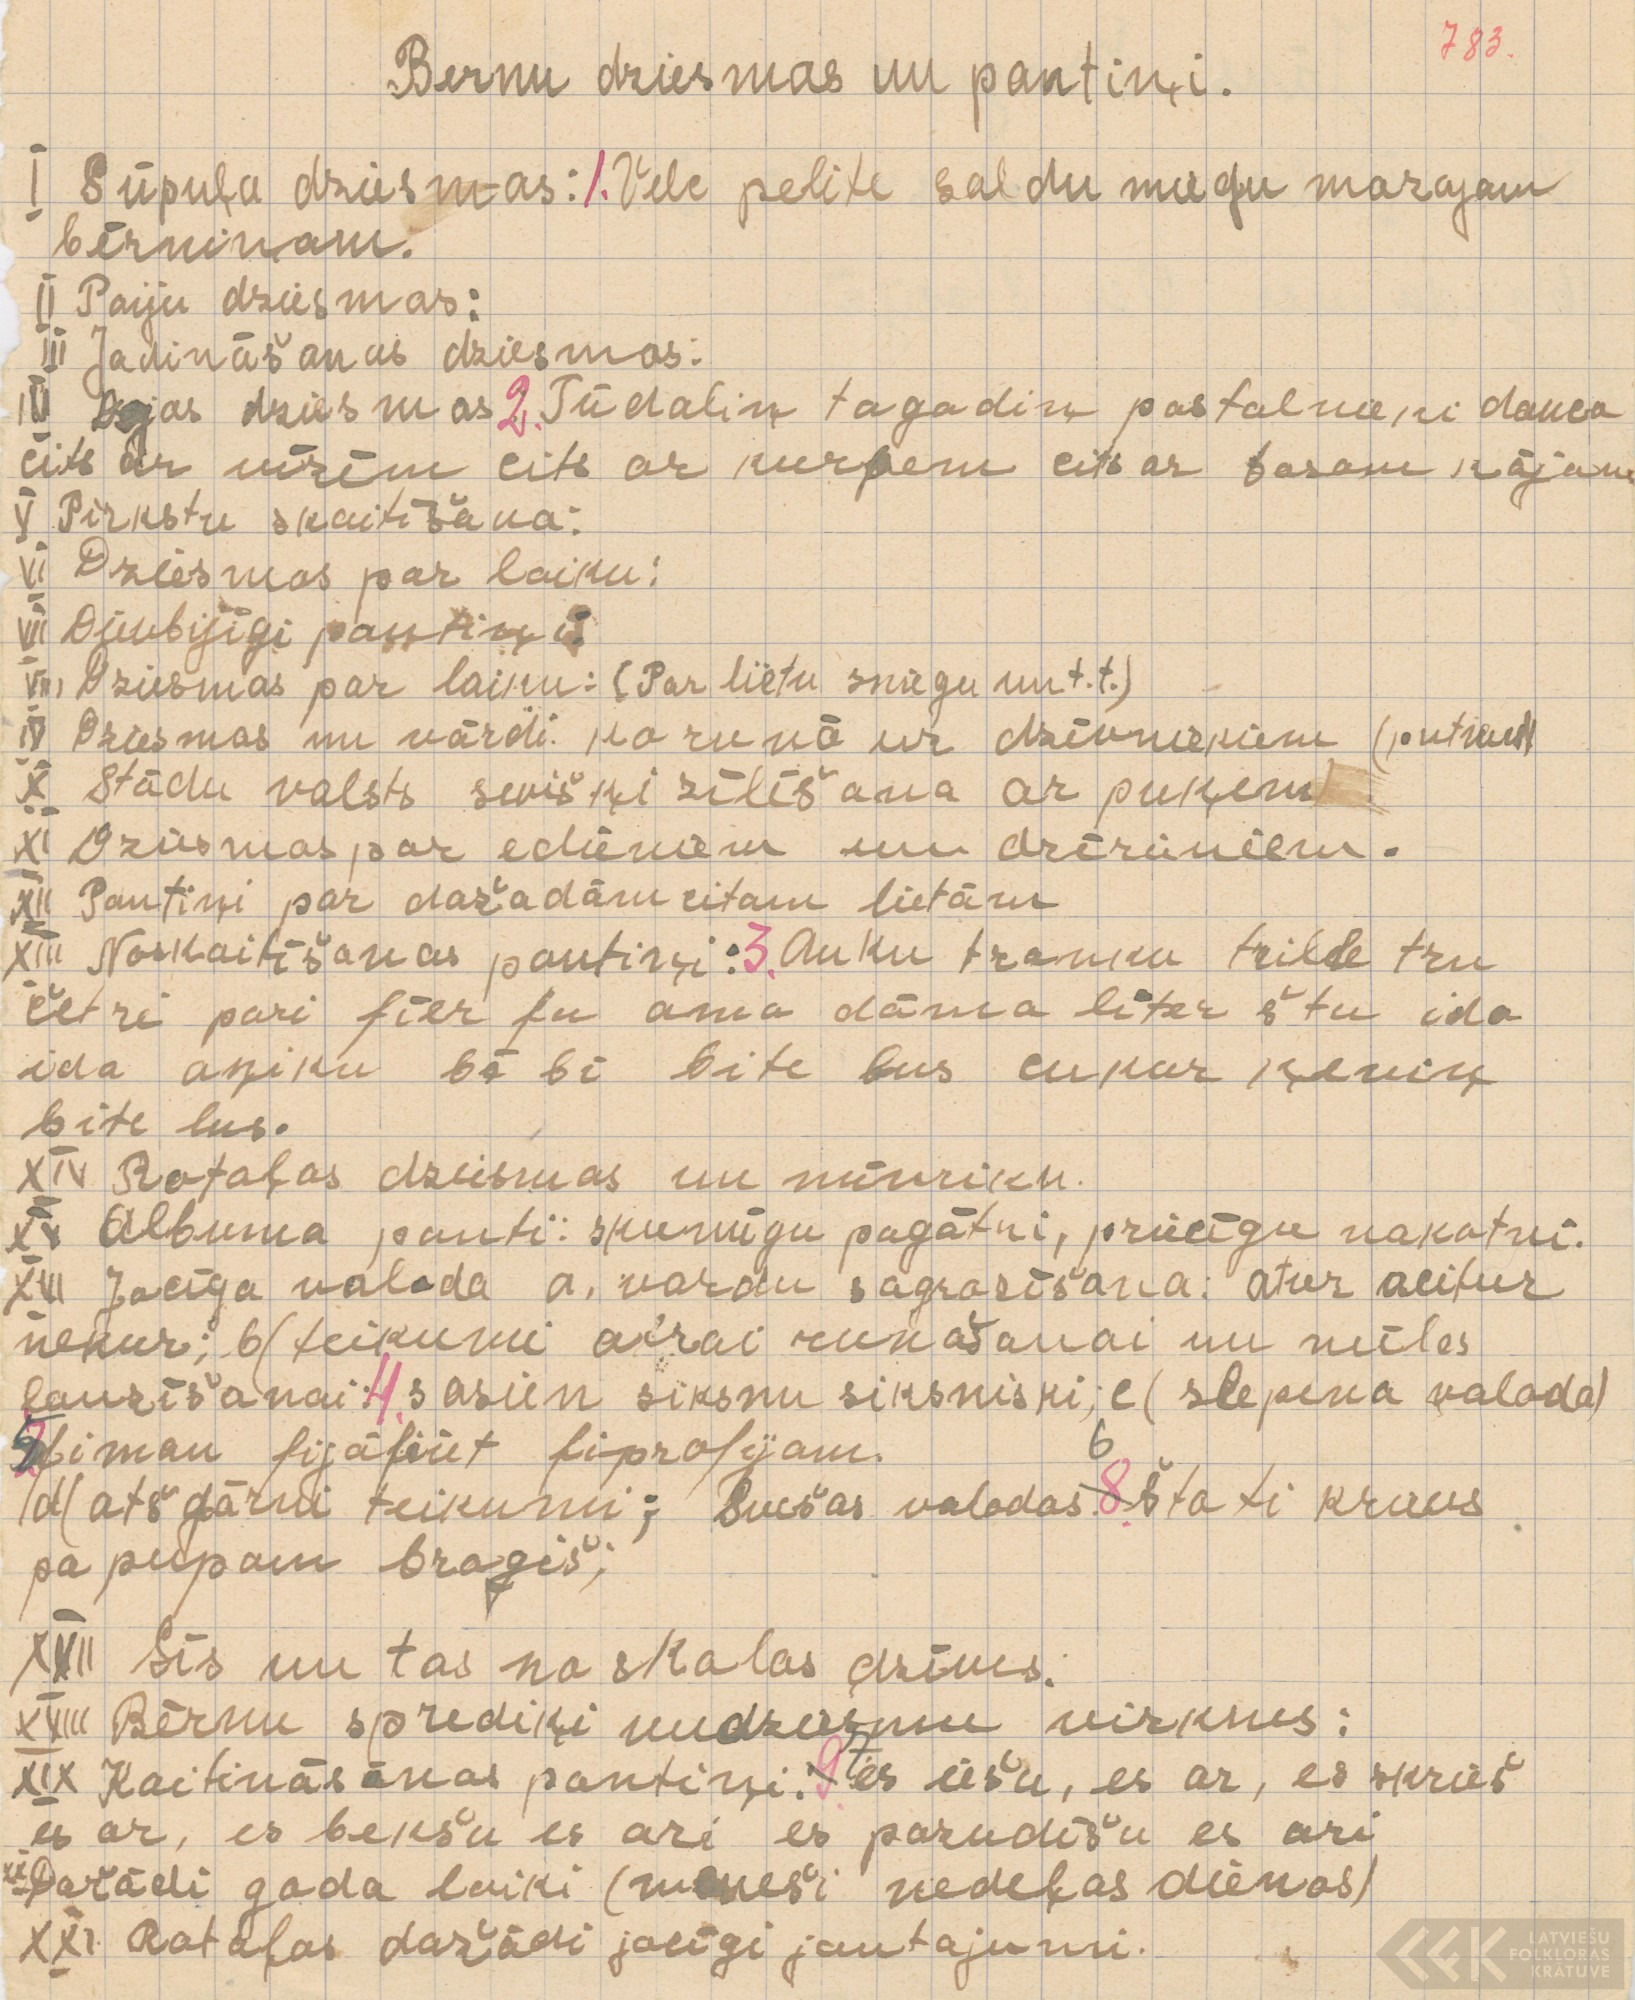 783.
Bernu dziesmas un pantiņi.
I Šūpuļa dziesmas: 1. Velc pelite saldu miegu mazajam
bērniņam.
II Paiju dziesmas:
III Jadināšanas dziesmas:
IV Dejas dziesmas 2. Tūdaliņ tagadiņ pastalnieki danco
cits ar vīzēm cits ar kurpem cits ar basam kājam
V Pirkstu skaitīšana:
VI Dziesmas par laiku:
VII Divbijīgi pantiņi:
VIII, Dziesmas par laiku: (Par lietu sniegu un t.t.)
IV Dziesmas un vārdi ko runā ur dzīvniekiem (putniem)
X Stādu valsts seviški zīlēšana ar puķem
XI Dziesmas par edieniem un dzērieniem.
XII Pantiņi par dažadām citam lietām
XIII Noskaitīšanas pantiņi: 3. Anku tranku trilde tru
četri pari fier fu ama dāma liter štu ida
ida aņiku bi bī bite bus cukur ķeniņ
bite lus.
XIV Rotaļas dziesmas un
XV Albuma panti: skumīgu pagātni, priecīgu nakotni.
XVI Jocīga valoda a, vardu sagrozīšana: atur acitur
nekur; b( teikumi atrai runašanai un mēles
lauzīšanai: 4. sasien siksnu siksniski; c( slepena valoda)
5 fiman fijāfiet fiprofijam.
d( atšgārni teikumi; Svešas valodas 8. 6 šta ti kruus
pa pupam bragiš;
XVII Šis un tas no skolas dzīves:
XVIII Bērnu sprediķi un dziesmu virknes:
XIX Kaitināsanas pantiņi: 9. 7 es iešu, es ar, es skrieš
es ar, es bekšu es ari es pazudīšu es ari
XX Dažādi gada laiki (meneši nedeļas dienas)
XXI Rotaļas dažādi jocīgi jautajumi.
LATVIEŠU
FOLKLORAS
KRĀTUVE